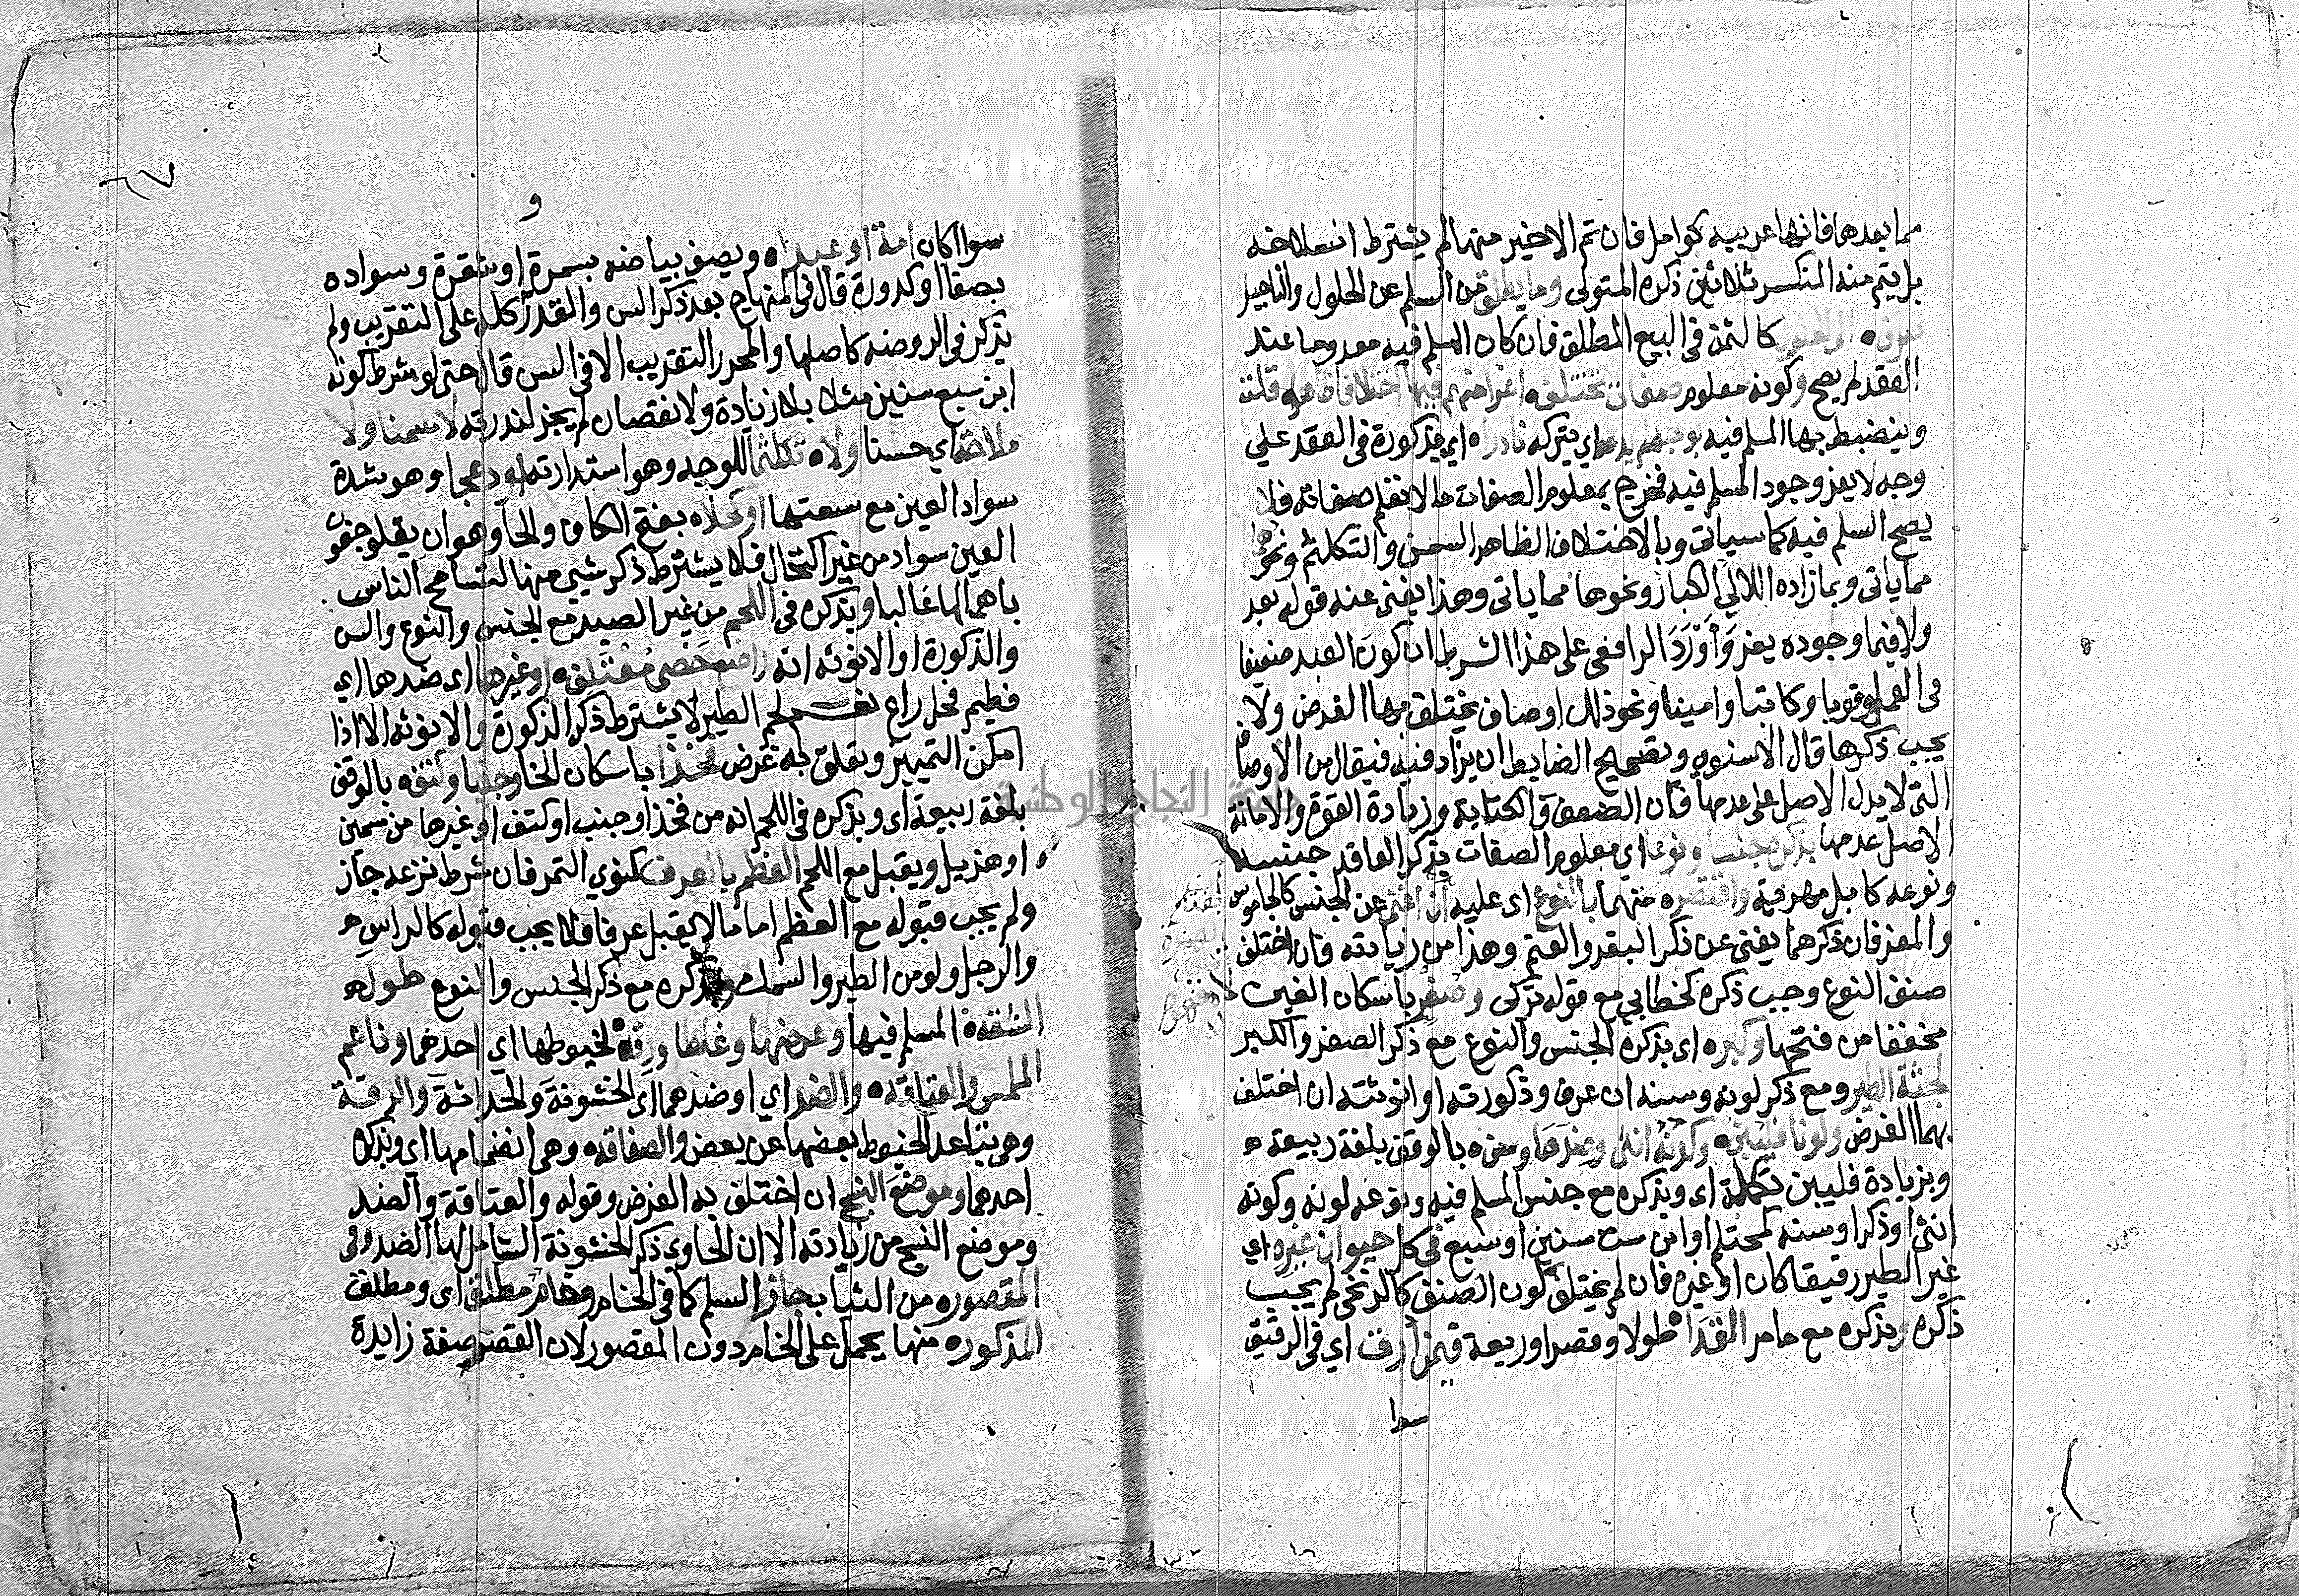 مما بعدها فانها عربيه كوامل فان تم الاخير منها لم يشترط انسلاخه
بل يتم منه المنكسر ثلاثين ذكره المتولى وما يطلق من السلم عن الحلول والتاجيل
كالثمن فى البيع المطلق فان كان المسلم فيه معدوما عند
العقد لم يصح وكونه معلوم صفات تختلف اغراضهم فيها اختلافا ظاهرا قلت
وينضبط بها المسلم فيه اي يتركه نادرا اي مذكورة فى العقد علي
وجه لا يعز وجود المسلم فيه فخرج بمعلوم الصفات ما لا تعلم صفاته فلا
يصح السلم فيه كما سياتى وبالاختلاف الظاهر السمن والتكلثم ونحوهما
مما ياتى وبما زاده اللالي الكبار ونحوها مما ياتى وهذا يغنى عنه قوله بعد
ولا فيما وجوده يعز وَأَوْرَدَ الرافعى على هذا الشرط ان كون العبد ضعيفا
فى العمل وقويا وكاتبا وامينا ونحو ذلك اوصاف يختلف بها الغرض ولا
يجب ذكرها قال الاسنوي وتصحيح الضابط ان يزاد فيه فيقال من الاوصاف
التى لا يدل الاصل على عدمها فان الضعف والكتابة وزيادة القوة والامانة
الاصل عدمها بذكر جنسا ونوعا اي معلوم الصفات بذكر العاقد جنسه
ونوعه كابل مهرية واقتصره منهما بالنوع اى عليه ان اغنى عن الجنس كالجاموس
والمعز فان ذكرهما يغنى عن ذكر البقر والغنم وهذا من زيادته فان اختلف
صنف النوع وجب ذكره كخطابي مع قوله تركى وصغر باسكان الغين
مخففا من فتحها وكبره اى بذكره الجنس والنوع مع ذكر الصغر والكبر
لجثة الطير ومع ذكر لونه وسنه ان عرف وذكورته او انوثته ان اختلف
بهما الغرض ولونا فليبين وكونه انثى وضدها وسنه بالوقف بلغة ربيعة
وبزيادة فليبين تكملة اى ويذكره مع جنس المسلم فيه ونوعه لونه وكونه
انثى او ذكرا وسنه كمحتلم او ابن ست سنين او سبع فى كل حيوان غيره اي
غير الطير رقيقا كان او غيره فان لم يختلف لون الصنف كالزنجى لم يجب
ذكره ويذكره مع ما مر القدا طولا وقصرا وربعة فيمن ارق اي فى الرقيق
سوا
٦٧
و
سوا اكان امة او عبدا ويصف بياضه بسمرة او شقرة وسواده
بصفا او كدورة قال فى المنهاج بعد ذكر السن والقد كله على التقريب ولم
يذكر فى الروضه كاصلها والمحرر التقريب الا فى السن قال حتى لو شرط كونه
ابن سبع سنين مثلا بلا زيادة ولا نقصان لم يجز لندرته لا سمنا ولا
ملاحة اي حسنا ولا تكلثما للوجه وهو استدارته او دعجا وهو شدة
سواد العين مع سعتها او كحلا بفتح الكاف والحا وهو ان يعلو جفون
العين سواد من غير اكتحال فلا يشترط ذكر شيء منها لتسامح الناس
باهمالها غالبا ويذكره فى اللحم من غير الصيد مع الجنس والنوع والسن
والذكورة او الانوثه انه راضع خصى معتلف او غيرها اى ضدها اي
فطيم فحل راع نعم لحم الطير لا يشترط ذكر الذكورة والانوثه الا اذا
امكن التمييز وتعلق به غرض فخذا باسكان الخا وجنبا وكتف بالوقف
بلغة ربيعة اى ويذكره فى اللحم انه من فخذ او جنب او كتف او غيرها من سمين
او هزيل ويقبل مع اللحم العظم بالعرف كنوي التمر فان شرط نزعه جاز
ولم يجب قبوله مع العظم اما ما لا يقبل عرفا فلا يجب قبوله كالراس
والرجل ولو من الطير والسمك ويذكره مع ذكر الجنس والنوع طول
الشقه المسلم فيها وعرضها وغلظا ورقه لخيوطها اي احدهما وناعم
الملمس والعتاقه والضد اي او ضدهما اي الخشونة والحداثة والرقة
وهى تباعد الخيوط بعضها عن بعض والصفاقه وهى انضمامها اي ويذكر
احدهما وموضع النسج ان اختلف به الغرض وقوله والعتاقة والضد
وموضع النسج من زيادته الا ان الحاوي ذكر الخشونة الشامل لها الضد وفى
المقصوره من الثياب جاز السلم كما فى الخام وخام مطلق اى ومطلق
المذكوره منها يحمل على الخام دون المقصور لان القصر صفة زايدة
جامعة النجاح الوطنية